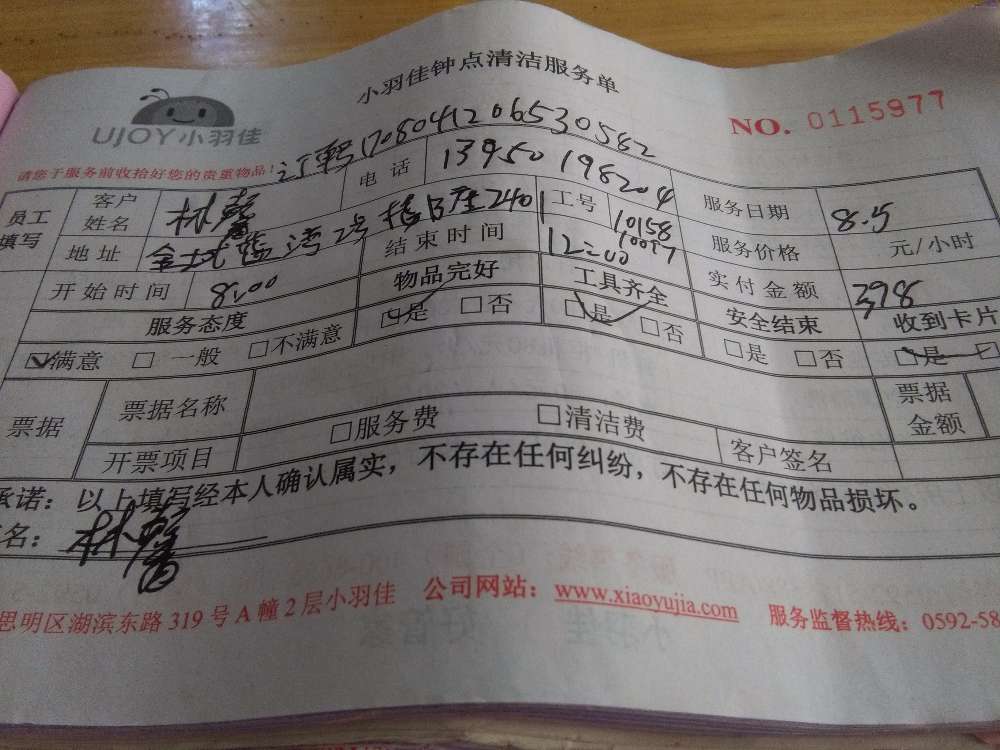 小羽佳钟点清洁服务单
UJOY小羽佳
NO. 0115977
请您于服务前收拾好您的贵重物品!
170804120653 0582
员工填写 客户姓名 林馨 电话 13950198204 服务日期 8.5
地址 2号楼B座2401 工号 10158 10097 服务价格 元/小时
开始时间 8:00 结束时间 12:00 实付金额 398
服务态度 物品完好 工具齐全 安全结束 收到卡片
☑满意 □一般 □不满意 ☑是 □否 ☑是 □否 □是 □否 ☑是
票据 票据名称 票据金额
开票项目 □服务费 □清洁费 客户签名
承诺：以上填写经本人确认属实，不存在任何纠纷，不存在任何物品损坏。
名： 林馨
思明区湖滨东路319号A幢2层小羽佳 公司网站：www.xiaoyujia.com 服务监督热线：0592-58